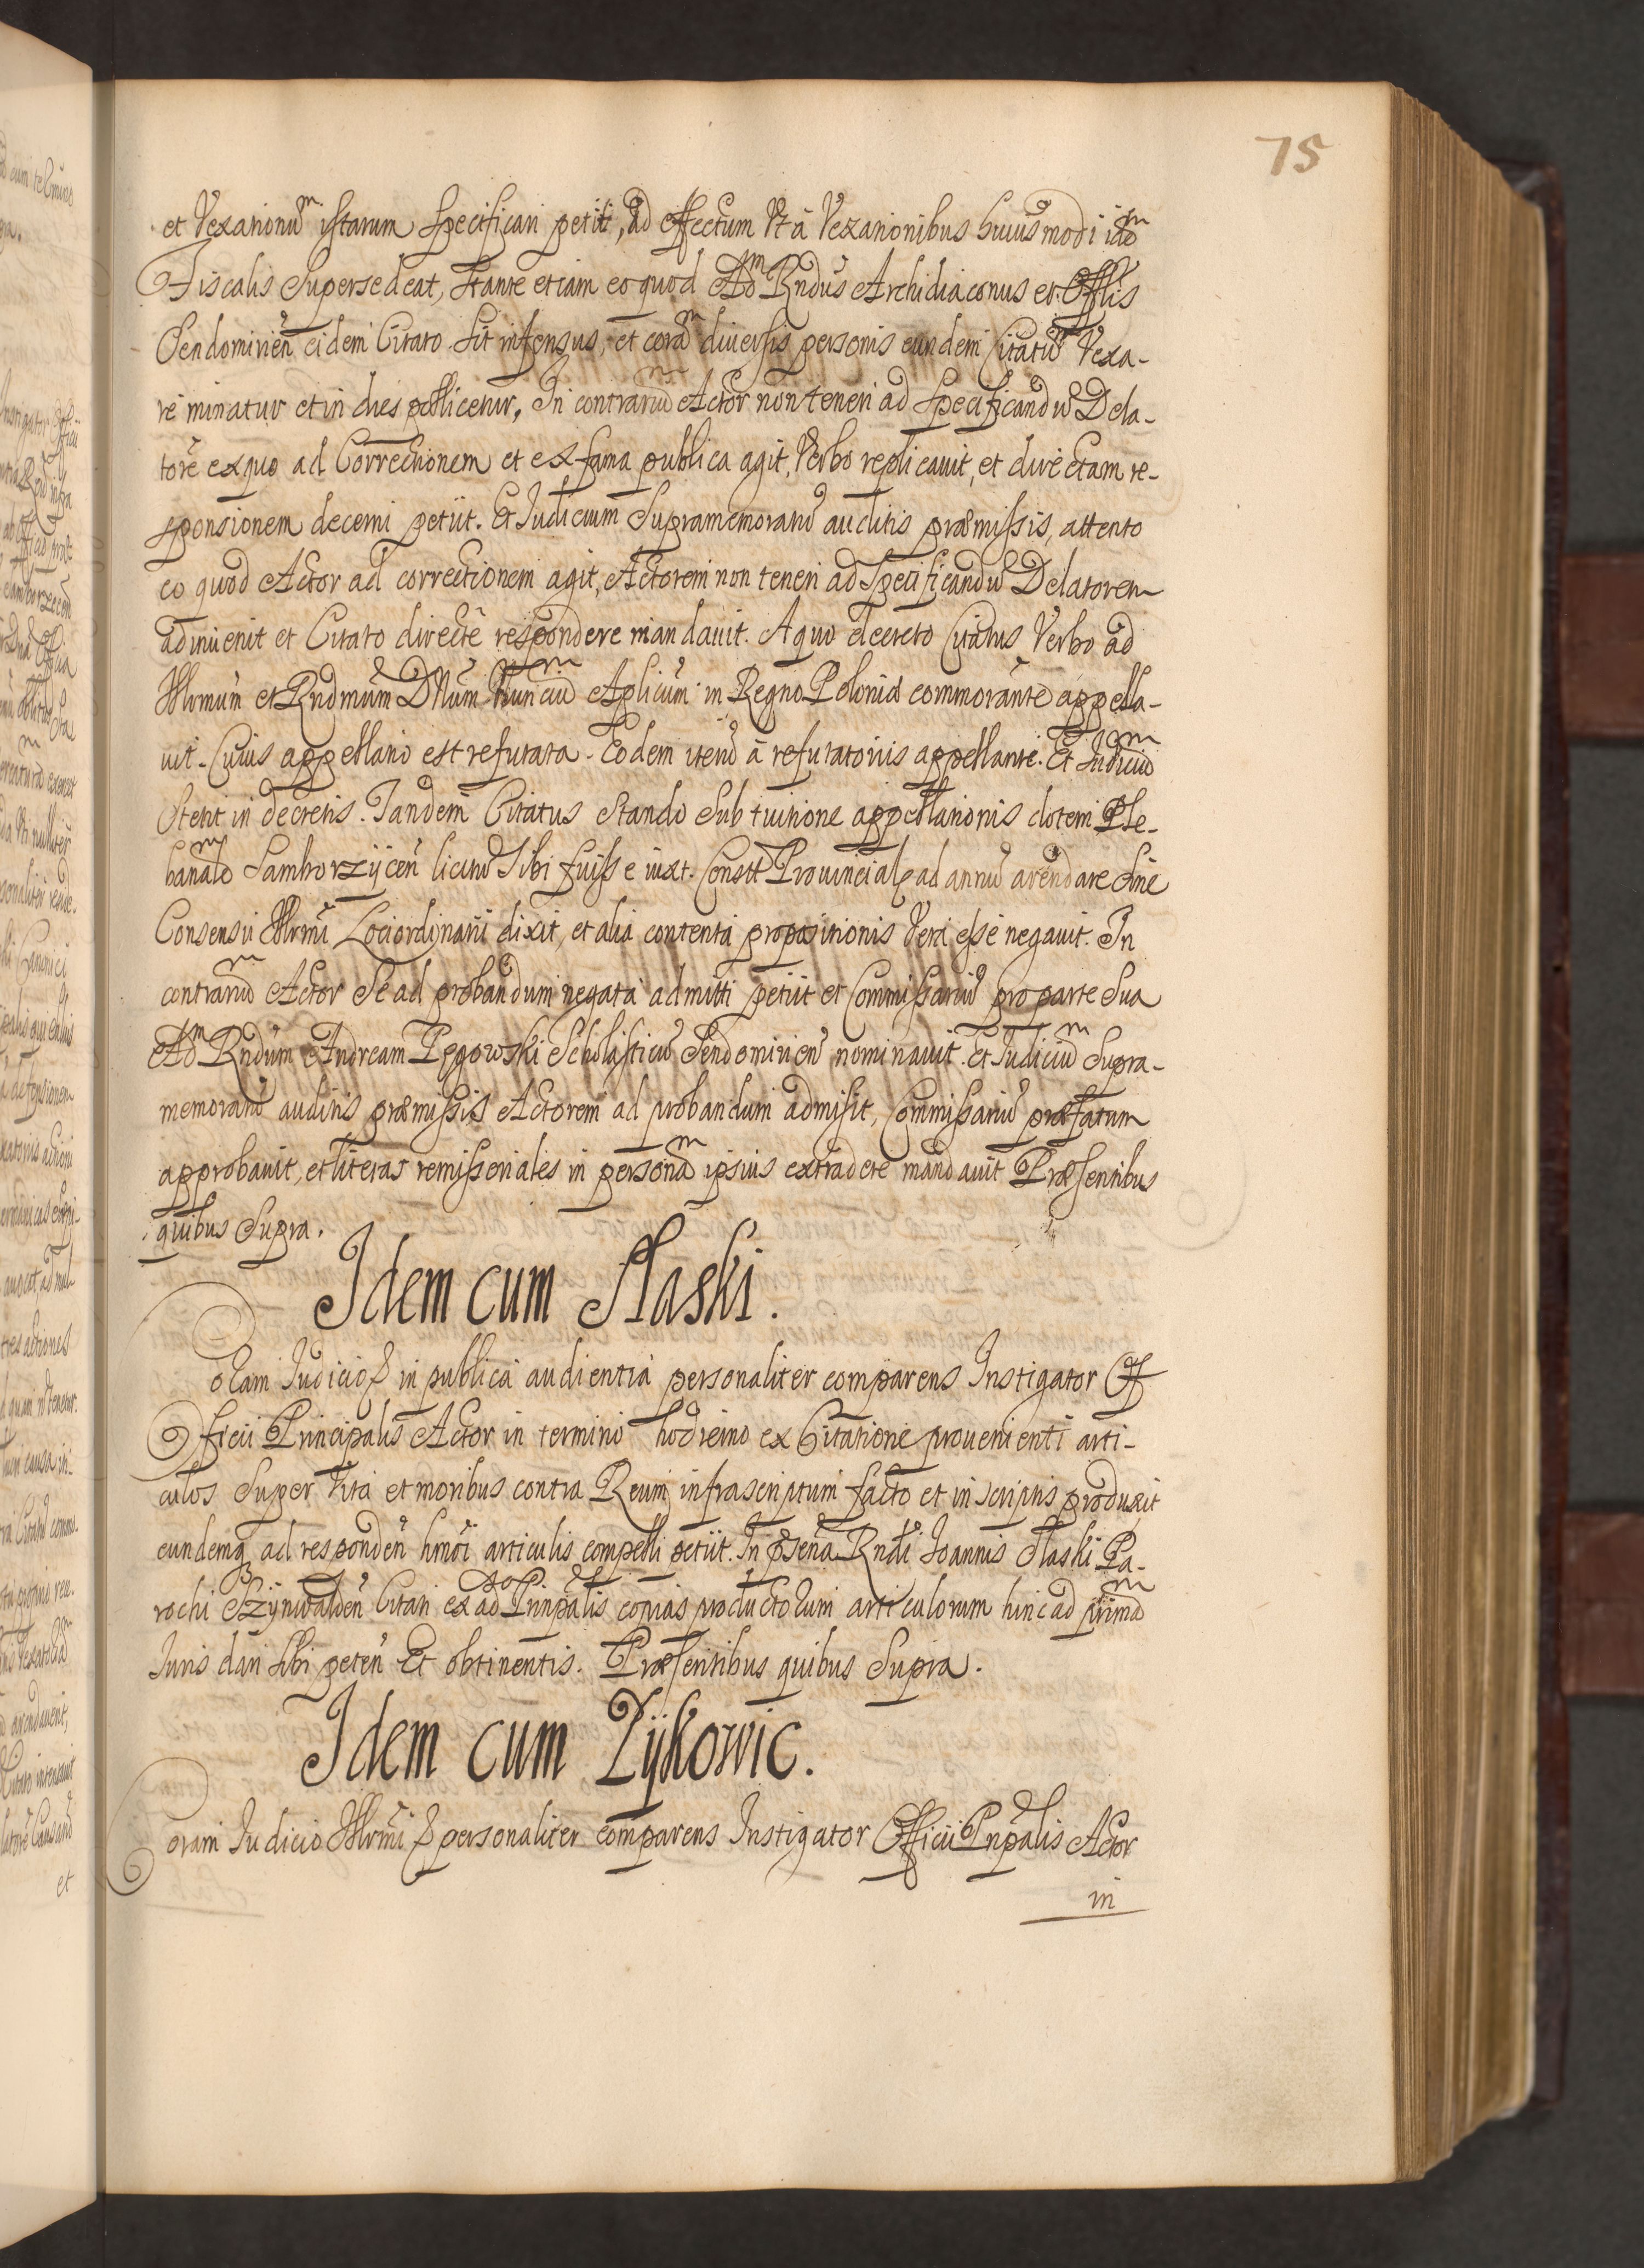 75
et Vexationũ istarum Specificari petiit, ad effectum Vt à Vexationibus huiusmodi idẽ
Fiscalis Supersedeat, Stante etiam eo quod Adm Rndus Archidiaconus et Offlis
Sendomirien̄ eidem Citato sit infensus, et corã diuersis personis eundem Citatũ Vexa-
re minatur et in dies pollicetur. In contrariũ Actor non teneri ad Specificandũ Dela-
torẽ ex quo ad Correctionem et ex fama publica agit, Verbo replicauit, et directam re-
sponsionem decerni petiit. Et Iudicium Supramemoratũ auditis præmissis, attento
eo quod Actor ad correctionem agit, Actorem non teneri ad Specificandũ Delatorem
adinuenit et Citato directè respondere mandauit. A quo decreto Citatus Verbo ad
Illrmum et Rndmum DNum Nunciũ Aplicum in Regno Poloniæ commorantẽ appella-
uit. Cuius appellatio est refutata. Eodem iterũ à refutatoriis appellante. Et Iudiciũ
Stetit in decretis. Tandem Citatus Stando Sub tuitione appellationis dotem Ple-
banalẽ Samborzÿcen̄ licitũ Sibi fuisse iuxt. Constt Prouinciales ad annũ arendare sine
Consensu Illrmi Loci ordinarii dixit, et alia contenta propositionis Vera esse negauit. In
contrariũ Actor Se ad probandum negata admitti petiit et Commissariũ pro parte Sua
Adm Rndum Andream Pęgowski Scholasticũ Sendomirien̄ nominauit. Et Iudiciũ Supra-
memoratũ auditis præmissis Actorem ad probandum admisit, Commissariũ præfatum
approbauit, et literas remissoriales in personã ipsius extradere mandauit Præsentibus
quibus Supra.
Idem cum Slaski.
Coram Iudicio & in publica audientia personaliter comparens Instigator Of
ficii Principalis Actor in termino hodierno ex Citatione prouenienti arti-
culos Super Vita et moribus contra Reum infrascriptum facto et in scriptis produxit
eundemq; ad responden̄ hmoi articulis compelli petiit. In psena Rndi Ioannis Slaski Pa-
rochi Szÿnwalden̄ Citati ex ado Prinpalis copias productorum articulorum hinc ad primã
Iuris dari sibi peten̄ Et obtinentis. Præsentibus quibus Supra.
Idem cum Zÿkowic.
Coram Iudicio Illrmi & personaliter comparens Instigator Officii Prinpalis Actor
in